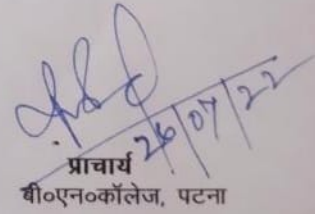 26/07/22
प्राचार्य
बी०एन०कॉलेज, पटना